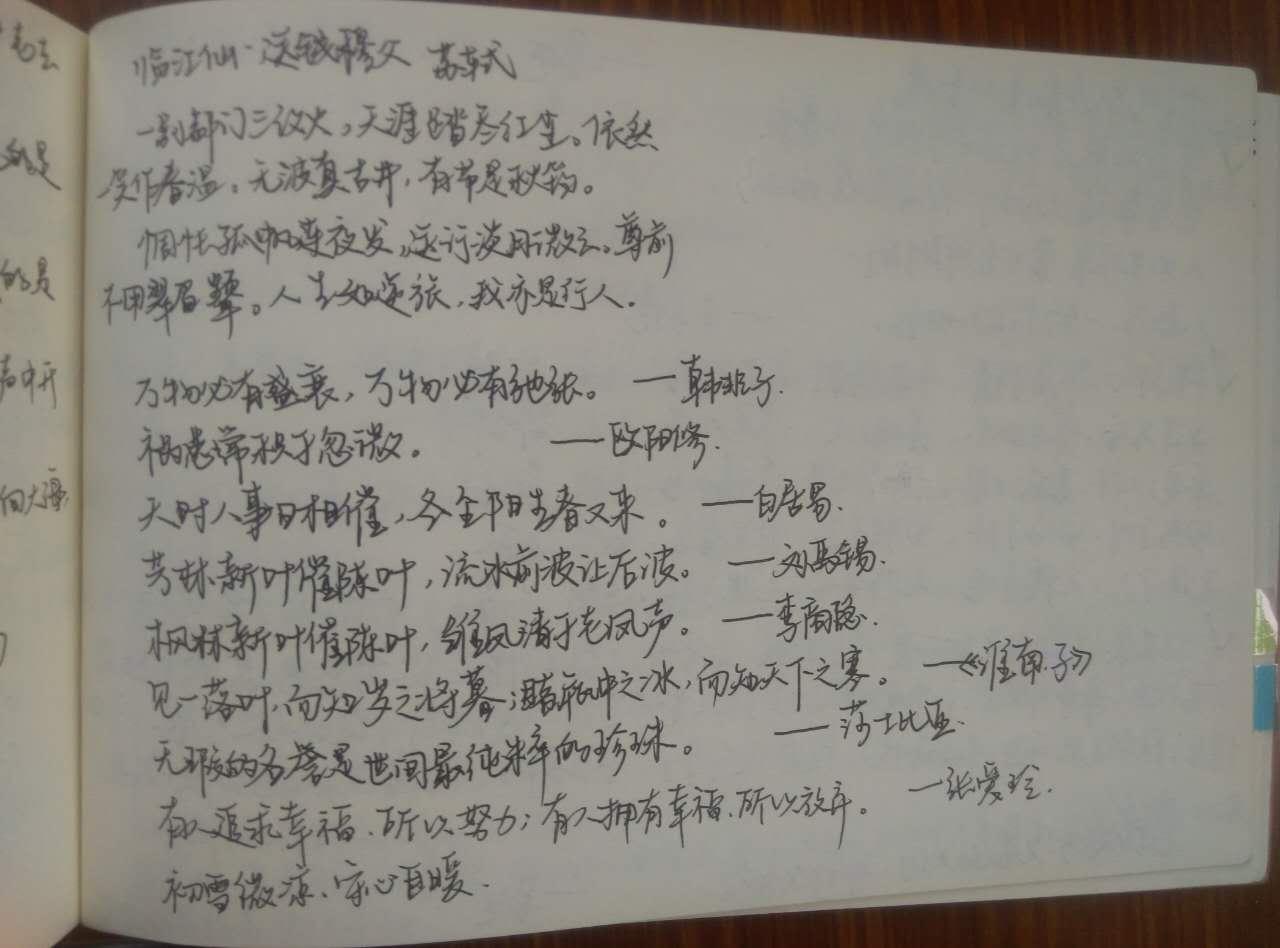 老去
的是
的是
声中开
向大
临江仙·送钱穆父 苏轼
一别都门三改火，天涯踏尽红尘。依然
笑作春温。无波真古井，有节是秋筠。
惆怅孤帆连夜发，送行淡月微云。尊前
不用翠眉颦。人生如逆旅，我亦是行人．
万物必有盛衰，万物必有弛张。 ——韩非子．
祸患常积于忽微。 ——欧阳修．
天时人事日相催，冬至阳生春又来。 ——白居易．
芳林新叶催陈叶，流水前波让后波。 ——刘禹锡．
枫林新叶催陈叶，雏凤清于老凤声。 ——李商隐．
见一落叶，而知岁之将暮；睹瓶中之冰，而知天下之寒。 —《淮南子》
无瑕的名誉是世间最纯粹的珍珠。 ——莎士比亚．
有人追求幸福、所以努力；有人拥有幸福、所以放弃。 —张爱玲．
初雪微凉、守心自暖．